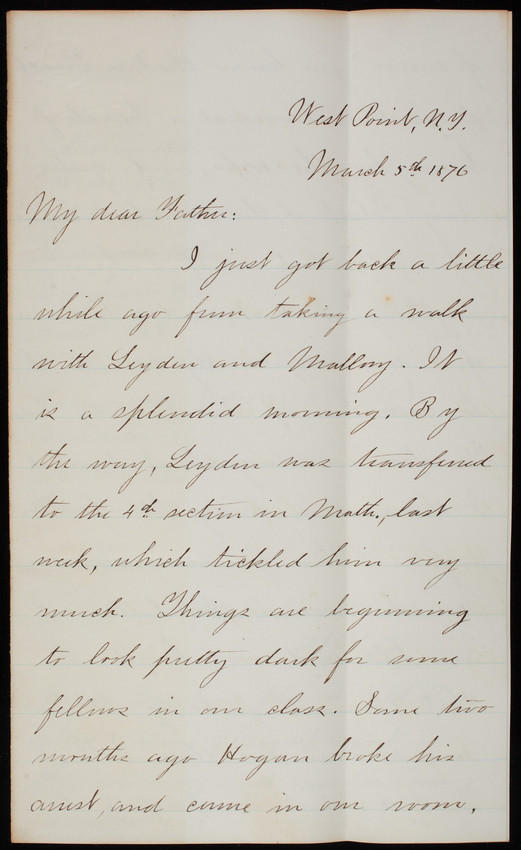 West Point, N.Y.
March 5th 1876
My dear Father:
I just got back a little
while ago from taking a walk
with Leyden and Mallory. It
is a splendid morning. By
the way, Leyden was transferred
to the 4th section in Math., last
week, which tickled him very
much. Things are beginning
to look pretty dark for some
fellows in our class. Some two
months ago Hogan broke his
arrest, and came in our room,